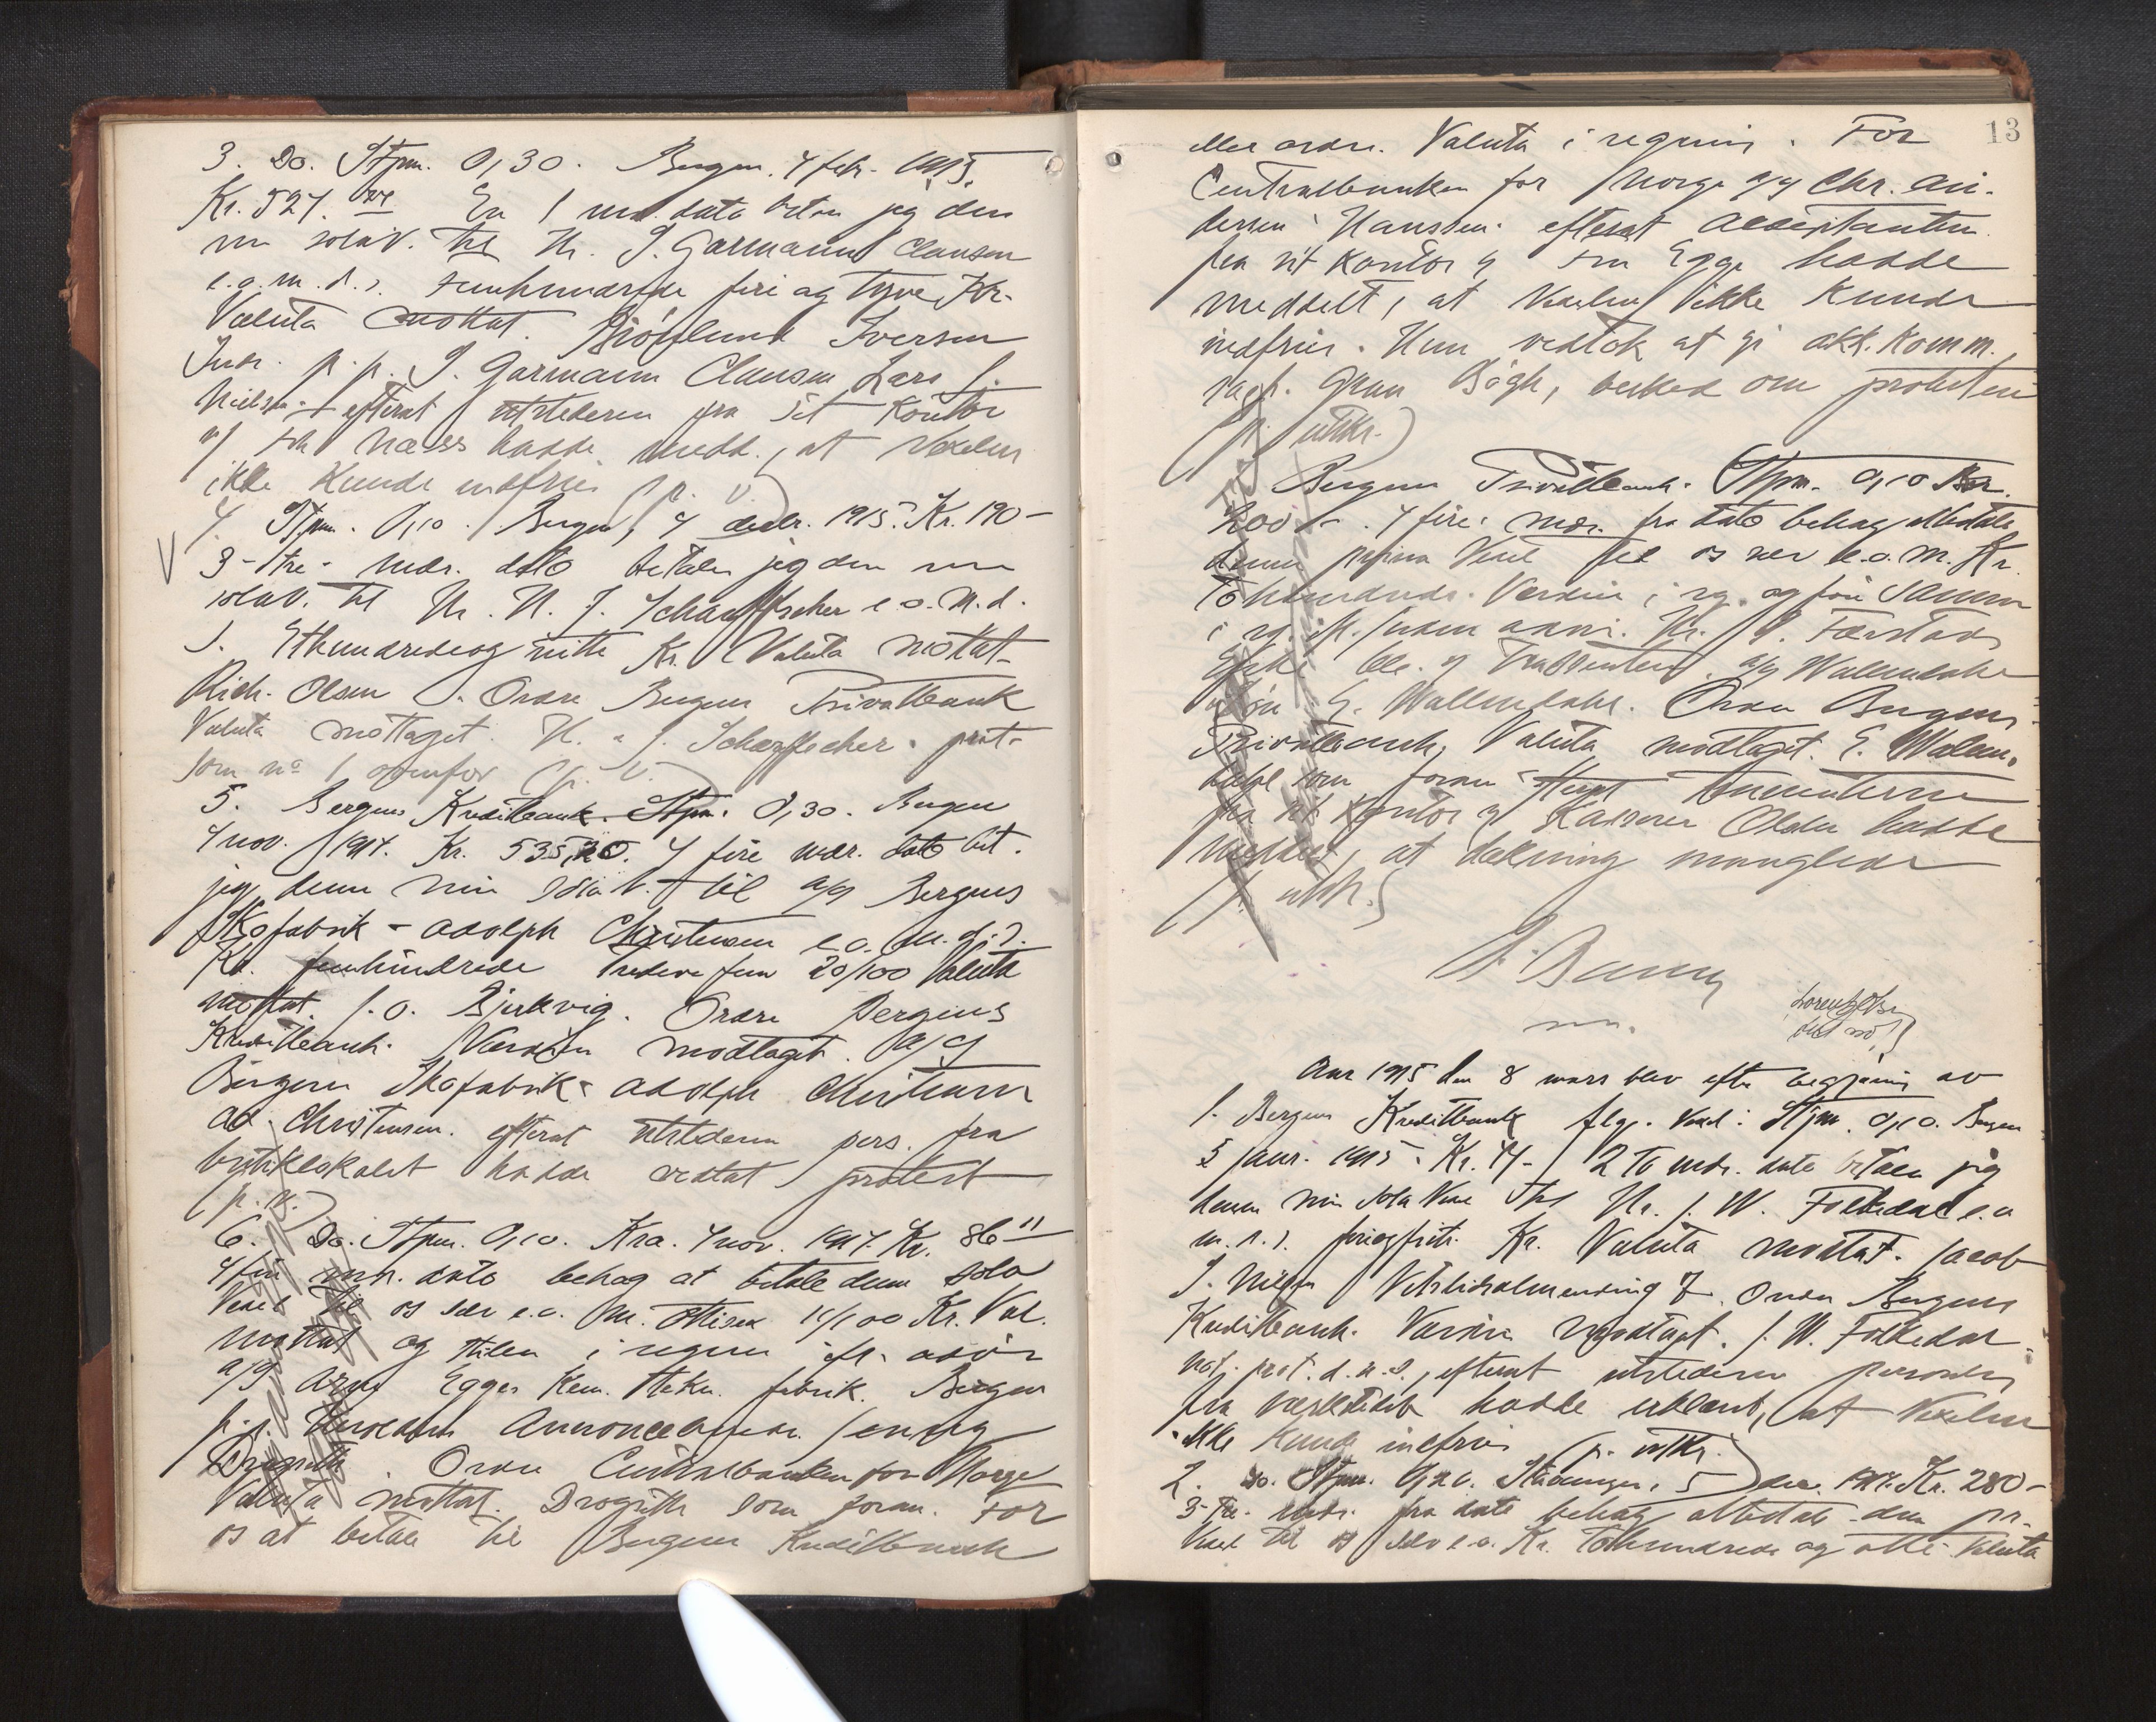 3. Do. Stpm. 0,30. Bergen. 4 febr. 1915.
Kr. 524. En 1 md. dato betaler jeg denne
min solav. til Hr. J. Garmann Clausen
e. o. m. d. s. Femhundrede fire og tyve Kr.
Valuta mottat. Iversen
Indr. p. p. J. Garmann Clausen Lars J.
Nielsen - efterat utstederen fra sit Kontor
v/ frk. Næss hadde medd., at Vexelen
ikke kunde indfries (p. v.)
4. Stpm. 0,10. Bergen, 4 decbr. 1915. Kr. 190 -
3 - tre - mdr. dato betaler jeg denne min
solav. til Hr. H. J. e. o. m. d.
s. Ethundredeog nitti Kr. Valuta mottat.
Rich. Olsen. Ordre Bergens Privatbank
Valuta mottaget. H. J. prot.
som no 1 ovenfor (p. v.)
5. Bergens Kreditbank. Stpm. 0,30. Bergen
4 nov. 1914. Kr. 535,20. 4 fire mdr. dato bet.
jeg denne min Sola V. til a/s Bergens
Skofabrik - Adolph Christensen e. o. m. d. s.
Kr. femhundrede tredive fem 20/100 Valuta
mottat. J. O. Bjerkvig. Ordre Bergens
Kreditbank. Værdien modtaget. A/S
Bergens Skofabrik - Adolph Christensen
Ad. Christensen. efterat utstederen pers. fra
butiklokalet hadde vedtat protest
p. v.)
6. Do. Stpm. 0,10. Kra. 4 nov. 1914. Kr. 86 11
4 fire mdr. dato behag at betale denne sola
Vexel til os selv e. o. m. Ottisex 11/100 Kr. Val.
mottat og stilen i regning ifl. advis
A/S Arne Egges Kem. tekn. fabrik. Bergen
p. p. Annoncebyrå
Ordre Centralbanken for Norge
Valuta mottat. som foran. For
os at betale til Bergens Kreditbank
13
eller ordre. Valuta i regning. For
Centralbanken for Norge Chr. An-
dersen Hanssen. efterat acceptanten
fra sit Kontor v fru Egge hadde
meddelt, at Vexelen ikke kunde
indfries. Hun vedtok at gi akk. Komm.
sagf. Gran Bøgh, besked om protesten
(p. utkr.)
Bergens Privatbank. Stpm. 0,10 Kr.
200. - . 4 fire mdr. fra dato behag at betale
denne prima Vexel til os selv e. o. m. Kr.
Tohundrede. Værdien i rg. og før samme
i rg. ifl./uden advis. Hr.
A/S Wallendahl
& Søn E. Wallendahl. Ordre Bergens
Privatbank, Valuta modtaget. E. Wallen-
dahl som foran efterat
fra sit Kontor v Kasserer Olsen hadde
meddelt, at dækning manglede
p. utkr.)
nn.
Aar 1915 den 8 mars blev efter begjæring av
1. Bergens Kreditbank flg. Vexel: Stpm. 0,10. Bergen
5 janr. 1915. Kr. 44 - 2 To mdr. dato betaler jeg
denne min Sola Vexel til Hr. J. W. Folkedal e. o
m. d. s. firiogfirti Kr. Valuta mottat. Jacob
J. Nilsen Vetrlidsalmending 7. Ordre Bergens
Kreditbank. Værdien modtaget. J. W. Folkedal.
not. prot. d. n. s., efterat utstederen personlig
fra værkstedet hadde erklært, at Vexelen
ikke kunde indfries (p. utkr.)
2. Do. Stpm. 0,20. Stavanger, 5 dec. 1914. Kr. 280 -
3 - Tre - mdr. fra dato behag at betale denne pr.
Vexel til os selv e. o. Kr. Tohundrede og otti Valuta